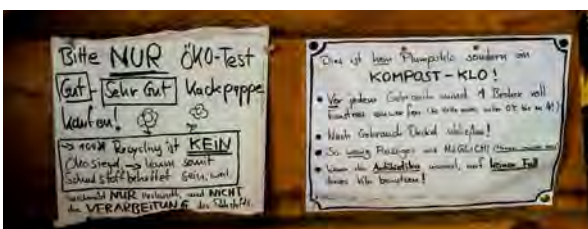 Bitte NUR ÖKO-Test
Gut - Sehr Gut Kackpappe
kaufen!
→ 100% Recycling ist KEIN
Ökosiegel → kann somit
Schadstoffbehaftet sein, weil
NUR und NICHT
die VERARBEITUNG des
Dies ist kein Plumpsklo sondern ein
KOMPOST-KLO!
• Vor jedem Gebrauch 1 Becher voll
• Nach Gebrauch Deckel schließen!
• So wenig Flüssiges wie MÖGLICH!
• Wenn du Antibiotika nimmst, auf keinen Fall
dieses Klo benutzen!